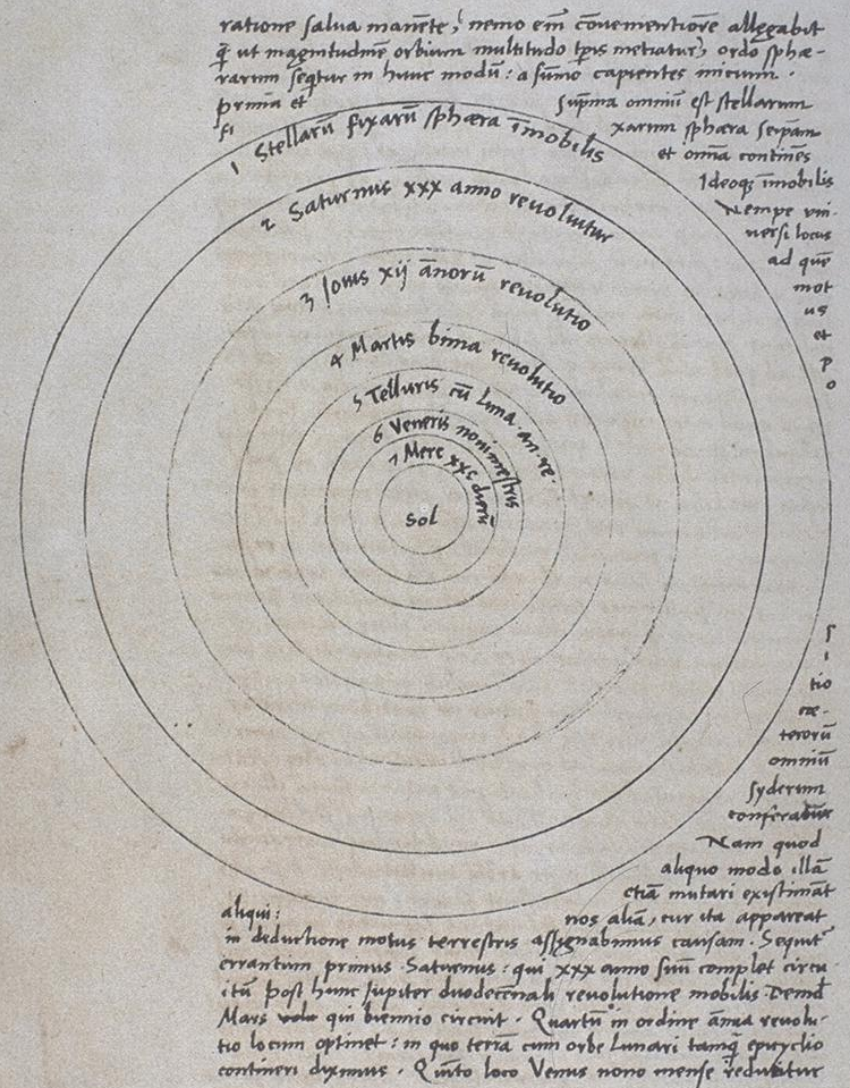 ratione salua manēte, nemo em̄ cōuenientiorē allegabit
q̄ ut magnitudinē orbium multitudo tp̄is metiatur, ordo sphæ-
rarum seqtur in hunc modū: a sūmo capientes initium.
prima et suprema omniū est stellarum
fi xarum sphæra seipam
et omīa continēs
Ideoqȝ īmobilis
Nempe vni-
uersi locus
ad quē
mot
us
et
p
o
1 Stellarū fixarū sphæra īmobilis
2 Saturnus xxx anno reuoluitur
3 Iouis xij ānorū reuolutio
4 Martis bima reuolutio
5 Telluris cū luna. an. re.
6 Veneris nonimestris
7 Merc xxc dierū
Sol
s
i
tio
cæ-
terorū
omniū
syderum
conferatur
Nam quod
aliquo modo illā
etiā mutari existimāt
aliqui: nos aliā, cur ita appareat
in deductione motus terrestris assignabimus causam. Sequit᷑
errantium primus Saturnus: qui xxx anno suū complet circu
itū post hunc Iupiter duodecēnali reuolutione mobilis. Deīnd
Mars qui biennio circuit. Quartū in ordine ānua reuolu-
tio locum optinet: in quo terrā cum orbe Lunari tamq̄ epicyclio
contineri diximus. Quinto loco Venus nono mense reducitur